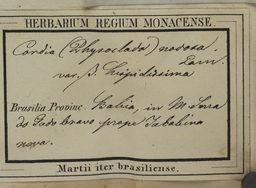 HERBARIUM REGIUM MONACENSE.
Cordia (Physoclada) nodosa.
Lam.
var. β. hispidissima
Brasiliæ Provinc. Bahia, in M. Serra
do Gado bravo prope Tabatina
nova.
Martii iter brasiliense.